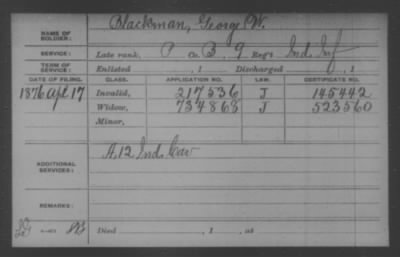 NAME OF SOLDIER: Blackman, George W.
SERVICE: Late rank, P Co. B, 9 Reg't Ind. Inf
TERM OF SERVICE: Enlisted , 1 Discharged , 1
DATE OF FILING. CLASS. APPLICATION NO. LAW. CERTIFICATE NO.
1876 Apl 17 Invalid, 217536 J 145442
Widow, 734868 J 523560
Minor,
ADDITIONAL SERVICES: A. 12 Ind. Cav
REMARKS:
Died , 1 , at